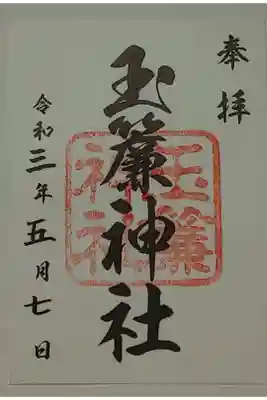 奉拝
玉簾神社
玉簾神社
令和三年五月七日